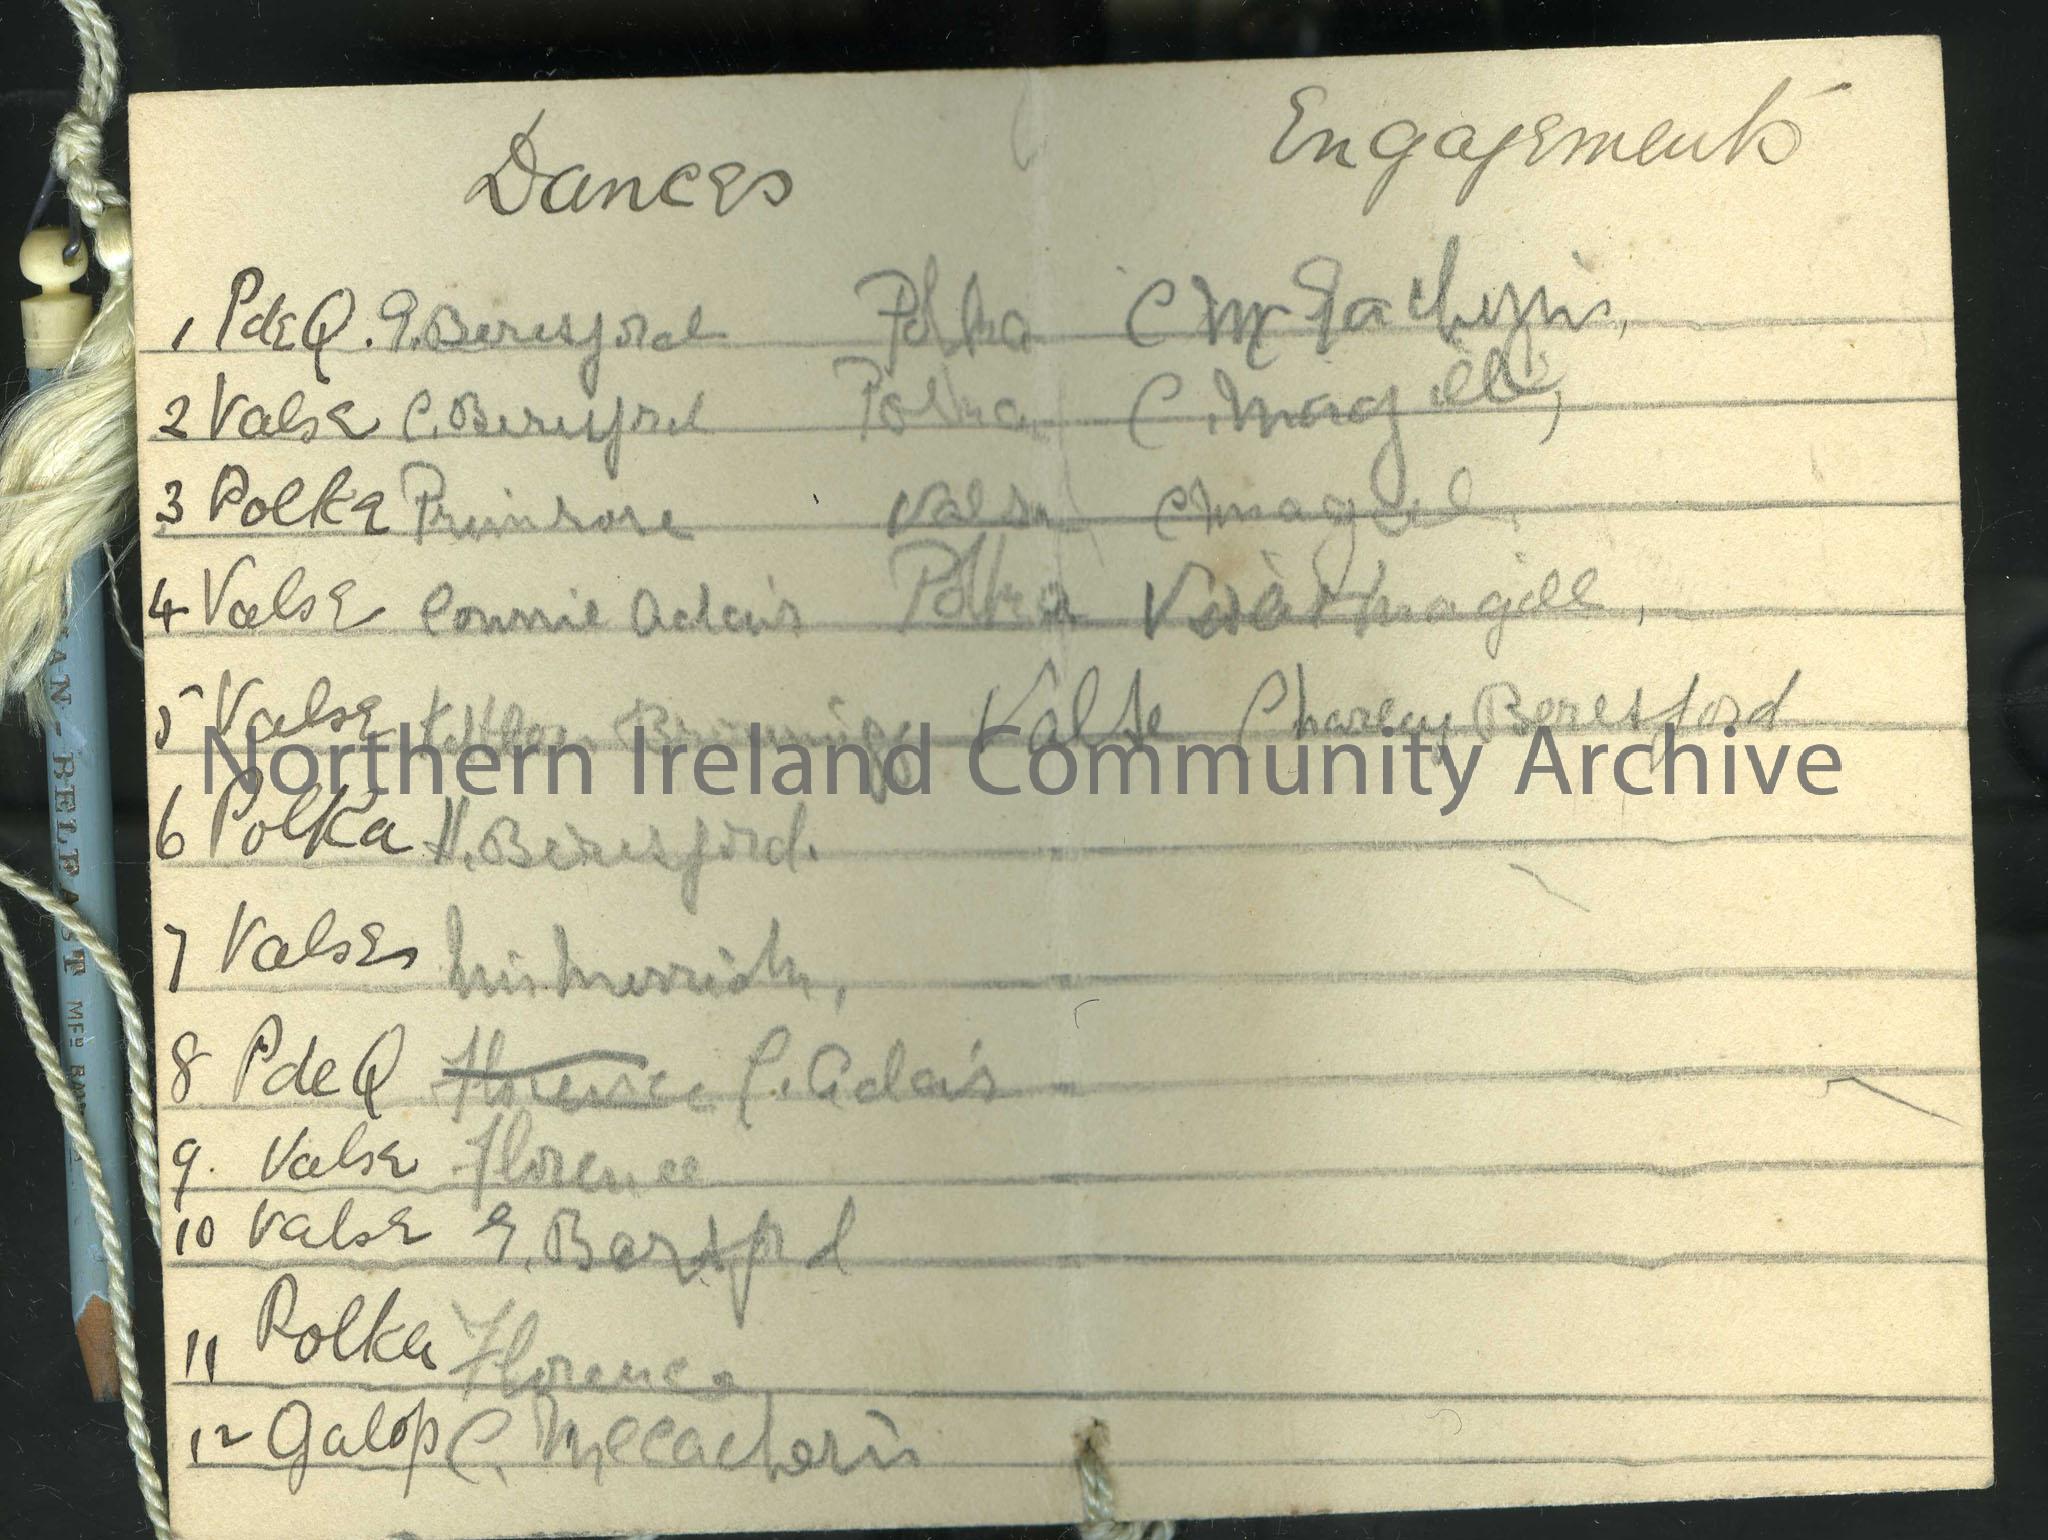 Dances Engagements
1 PdeQ. E. Beresford Polka C McEachern,
2 Valse C. Beresford Polka C. Magill,
3 Polka Primrose Valse C Magill,
4 Valse Connie Adair Polka Magill,
5 Valse Browning Valse Charley Beresford
Northern Ireland Community Archive
6 Polka H. Beresford.
7 Valses
8 PdeQ Florence C. Adair
9. Valse Florence
10 Valse E.
11 Polka Florence
12 Galop C.
BELFAST